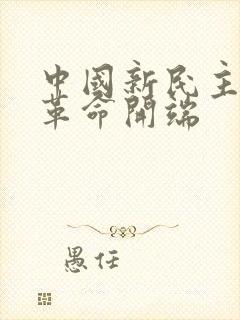 中國新民主
革命開端
愚任